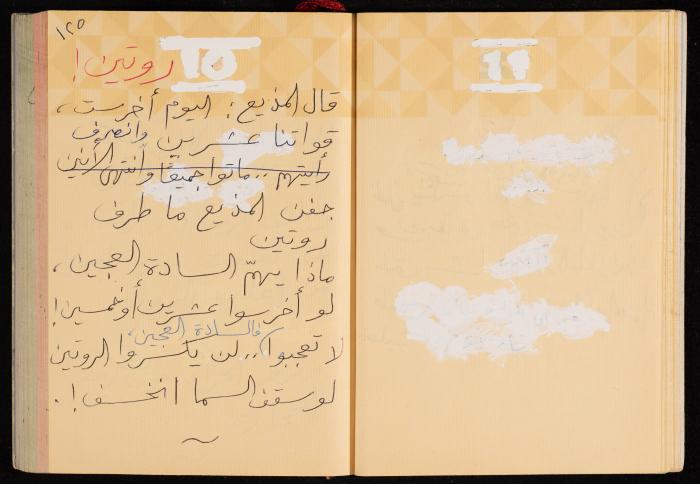 ١٢٥
روتين!
15
قال المذيع: اليوم أخرست،
قواتنا عشرين وانصرف
رأيتهم.. ماتوا جميعًا وانتهى الأنين
جفن المذيع ما طرف
روتين
ماذا يهمّ السادة العجين،
لو أخرسوا عشرين أو خمسين!
فالسادة العجين،
لا تعجبوا.. لن يكسروا الروتين
لو سقف السما انخسف!.
11